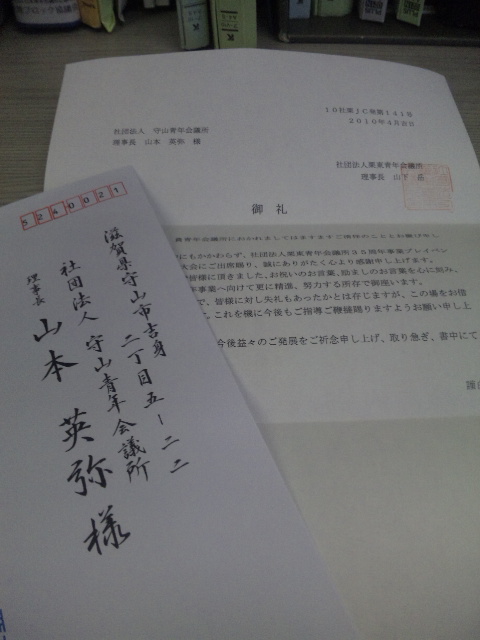 １０社栗ＪＣ発第１４１号
２０１０年４月吉日
社団法人　守山青年会議所
理事長　山本　英弥　様
社団法人栗東青年会議所
理事長　山下　岳
御　礼
青年会議所におかれましてはますますご清祥のこととお慶び申し
にもかかわらず、社団法人栗東青年会議所３５周年事業プレイベン
大会にご出席賜り、誠にありがたく心より感謝申し上げます。
皆様に頂きました、お祝いのお言葉、励ましのお言葉を心に刻み、
年事業へ向けて更に精進、努力する所存で御座います。
で、皆様に対し失礼もあったかとは存じますが、この場をお借
これを機に今後もご指導ご鞭撻賜りますようお願い申し上
今後益々のご発展をご祈念申し上げ、取り急ぎ、書中にて
謹
5240021
滋賀県守山市吉身
二丁目五－二二
社団法人　守山青年会議所
理事長　山本　英弥　様